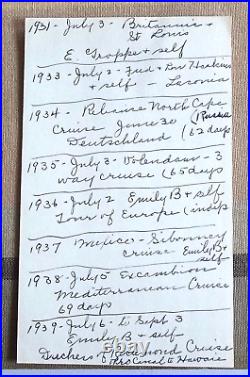 1931 - July 3 - Britannic +
St Louis
E. Groppe + self
1933 - July 2 - Fred + Bev
+ self - Laconia
1934 - Reliance North Cape
Cruise June 30 (Russia
Deutschland (62 days
1935 - July 3 - Volendam - 3
way cruise (65 days
1936 - July 2 Emily B + self
Tour of Europe (indep
1937 Mexico - Siboney
cruise Emily B +
self
1938 - July 5 Excambion
Mediterranean Cruise
69 days
1939 - July 6 - to Sept 3
Emily B + self
Duchess of Richmond Cruise
Pro Canal to Hawaii